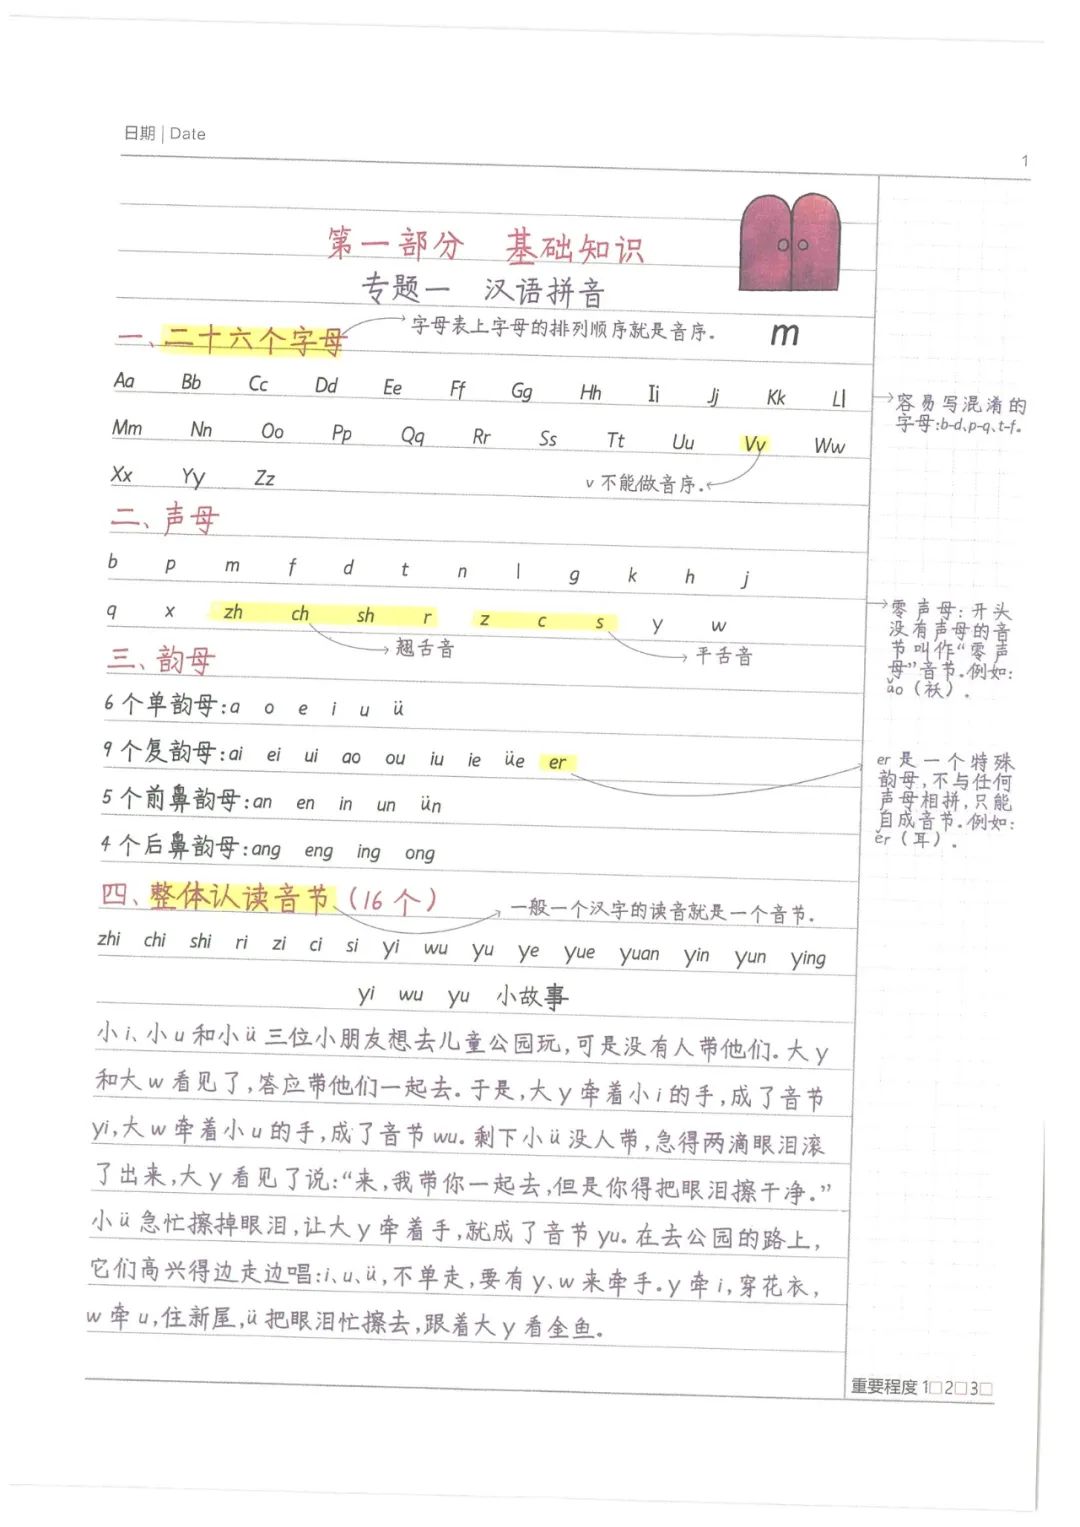 日期 | Date
1
第一部分 基础知识
专题一 汉语拼音
一、二十六个字母
字母表上字母的排列顺序就是音序。
m
Aa Bb Cc Dd Ee Ff Gg Hh Ii Jj Kk Ll
容易写混淆的
字母:b-d、p-q、t-f。
Mm Nn Oo Pp Qq Rr Ss Tt Uu Vv Ww
Xx Yy Zz
v 不能做音序。
二、声母
b p m f d t n l g k h j
q x zh ch sh r z c s y w
翘舌音
平舌音
零声母:开头
没有声母的音
节叫作“零声
母”音节。例如:
ǎo(袄)。
三、韵母
6个单韵母:a o e i u ü
9个复韵母:ai ei ui ao ou iu ie üe er
er是一个特殊
韵母,不与任何
声母相拼,只能
自成音节。例如:
ěr(耳)。
5个前鼻韵母:an en in un ün
4个后鼻韵母:ang eng ing ong
四、整体认读音节(16个)
一般一个汉字的读音就是一个音节.
zhi chi shi ri zi ci si yi wu yu ye yue yuan yin yun ying
yi wu yu 小故事
小i、小u和小ü三位小朋友想去儿童公园玩,可是没有人带他们。大y
和大w看见了,答应带他们一起去。于是,大y牵着小i的手,成了音节
yi,大w牵着小u的手,成了音节wu。剩下小ü没人带,急得两滴眼泪滚
了出来,大y看见了说:“来,我带你一起去,但是你得把眼泪擦干净。”
小ü急忙擦掉眼泪,让大y牵着手,就成了音节yu。在去公园的路上,
它们高兴得边走边唱:i、u、ü,不单走,要有y、w来牵手。y牵i,穿花衣,
w牵u,住新屋,ü把眼泪忙擦去,跟着大y看金鱼。
重要程度 1□2□3□